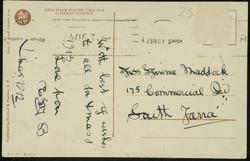 THIS SPACE MAY BE USED FOR
CORRESPONDENCE
25
With best of wishes
to all this Xmas &
1913
Love from
Xmas 1912
Miss Minnie Maddock
175 Commercial Rd
South Yarra